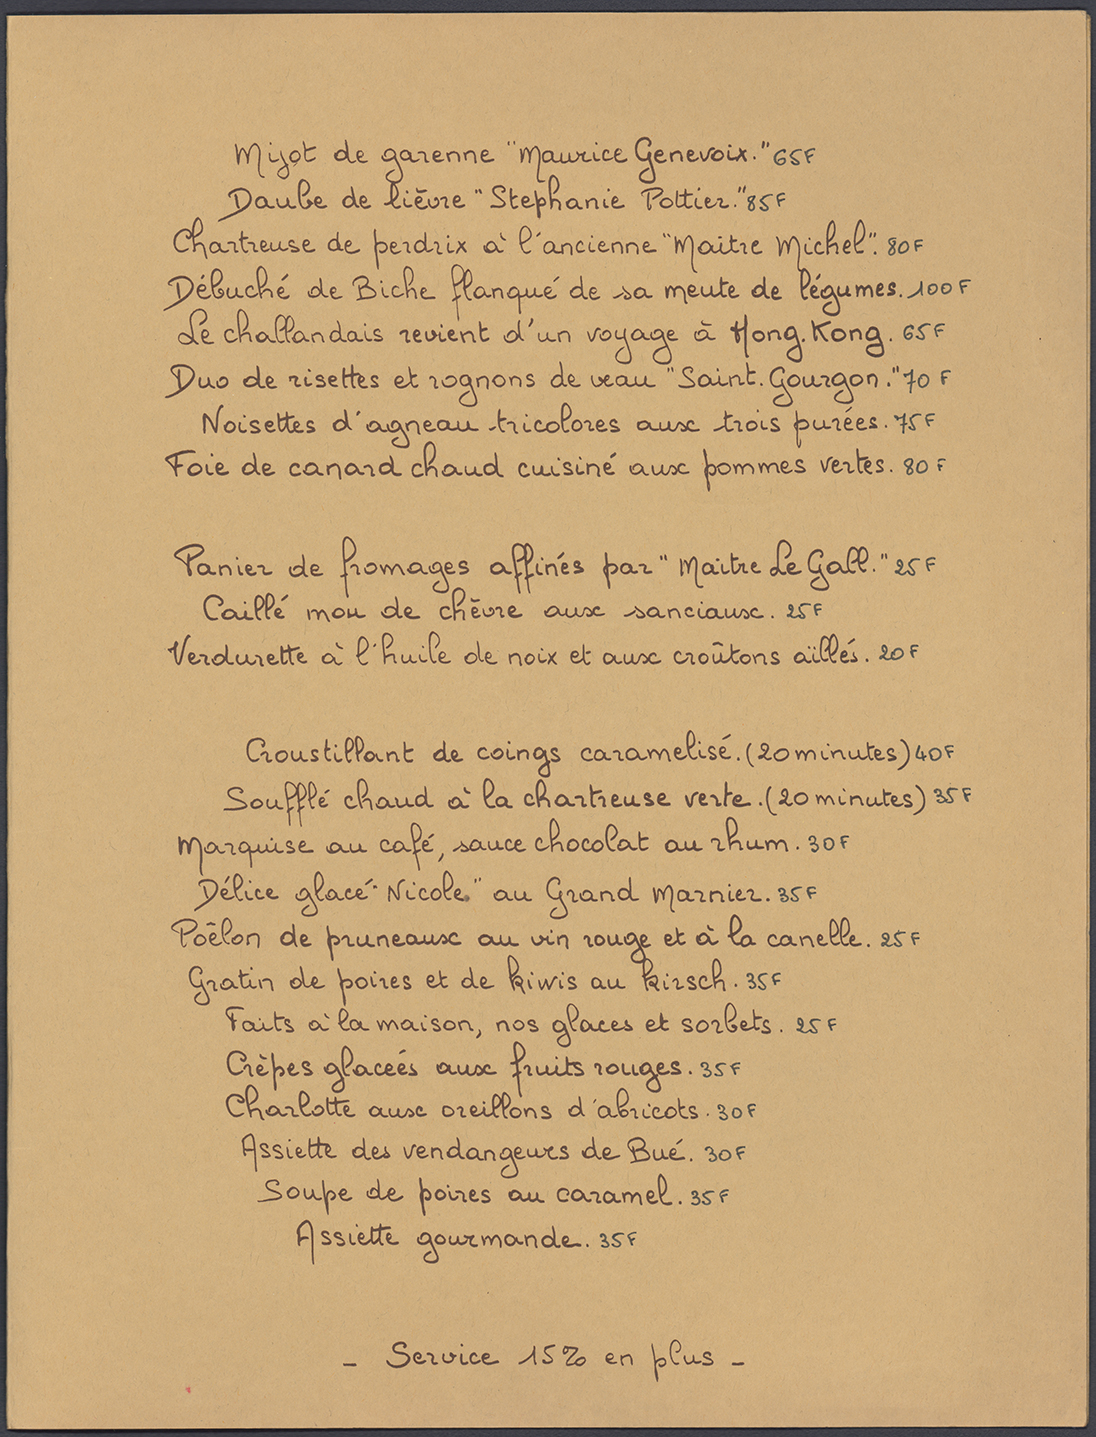 Mijot de garenne "Maurice Genevoix." 65F
Daube de lièvre "Stephanie Pottier." 85F
Chartreuse de perdrix à l'ancienne "Maitre Michel". 80F
Débuché de Biche flanqué de sa meute de légumes. 100F
Le challandais revient d'un voyage à Hong.Kong. 65F
Duo de risettes et rognons de veau "Saint.Gourgon." 70F
Noisettes d'agneau tricolores aux trois purées. 75F
Foie de canard chaud cuisiné aux pommes vertes. 80F
Panier de fromages affinés par "Maitre Le Gall." 25F
Caillé mou de chèvre aux sanciaux. 25F
Verdurette à l'huile de noix et aux croûtons aïllés. 20F
Croustillant de coings caramelisé. (20 minutes) 40F
Soufflé chaud à la chartreuse verte. (20 minutes) 35F
Marquise au café, sauce chocolat au rhum. 30F
Délice glacé "Nicole" au Grand Marnier. 35F
Poêlon de pruneaux au vin rouge et à la canelle. 25F
Gratin de poires et de kiwis au kirsch. 35F
Faits à la maison, nos glaces et sorbets. 25F
Crèpes glaceés aux fruits rouges. 35F
Charlotte aux oreillons d'abricots. 30F
Assiette des vendangeurs de Bué. 30F
Soupe de poires au caramel. 35F
Assiette gourmande. 35F
- Service 15% en plus -